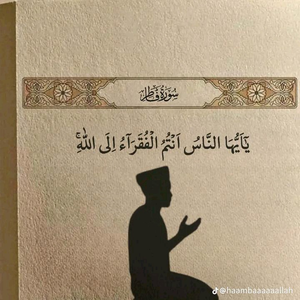 سُورَةُ فَاطِرٍ
يَٰٓأَيُّهَا النَّاسُ اَنْتُمُ الْفُقَرَٓاءُ اِلَى اللّٰهِۚ
@haambaaaaaailah